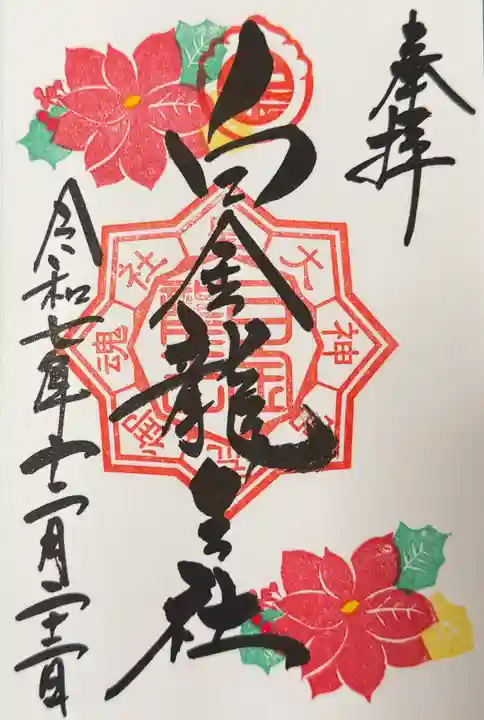 奉拝
白金龍王社
令和七年十二月二十二日
大神宮
魂